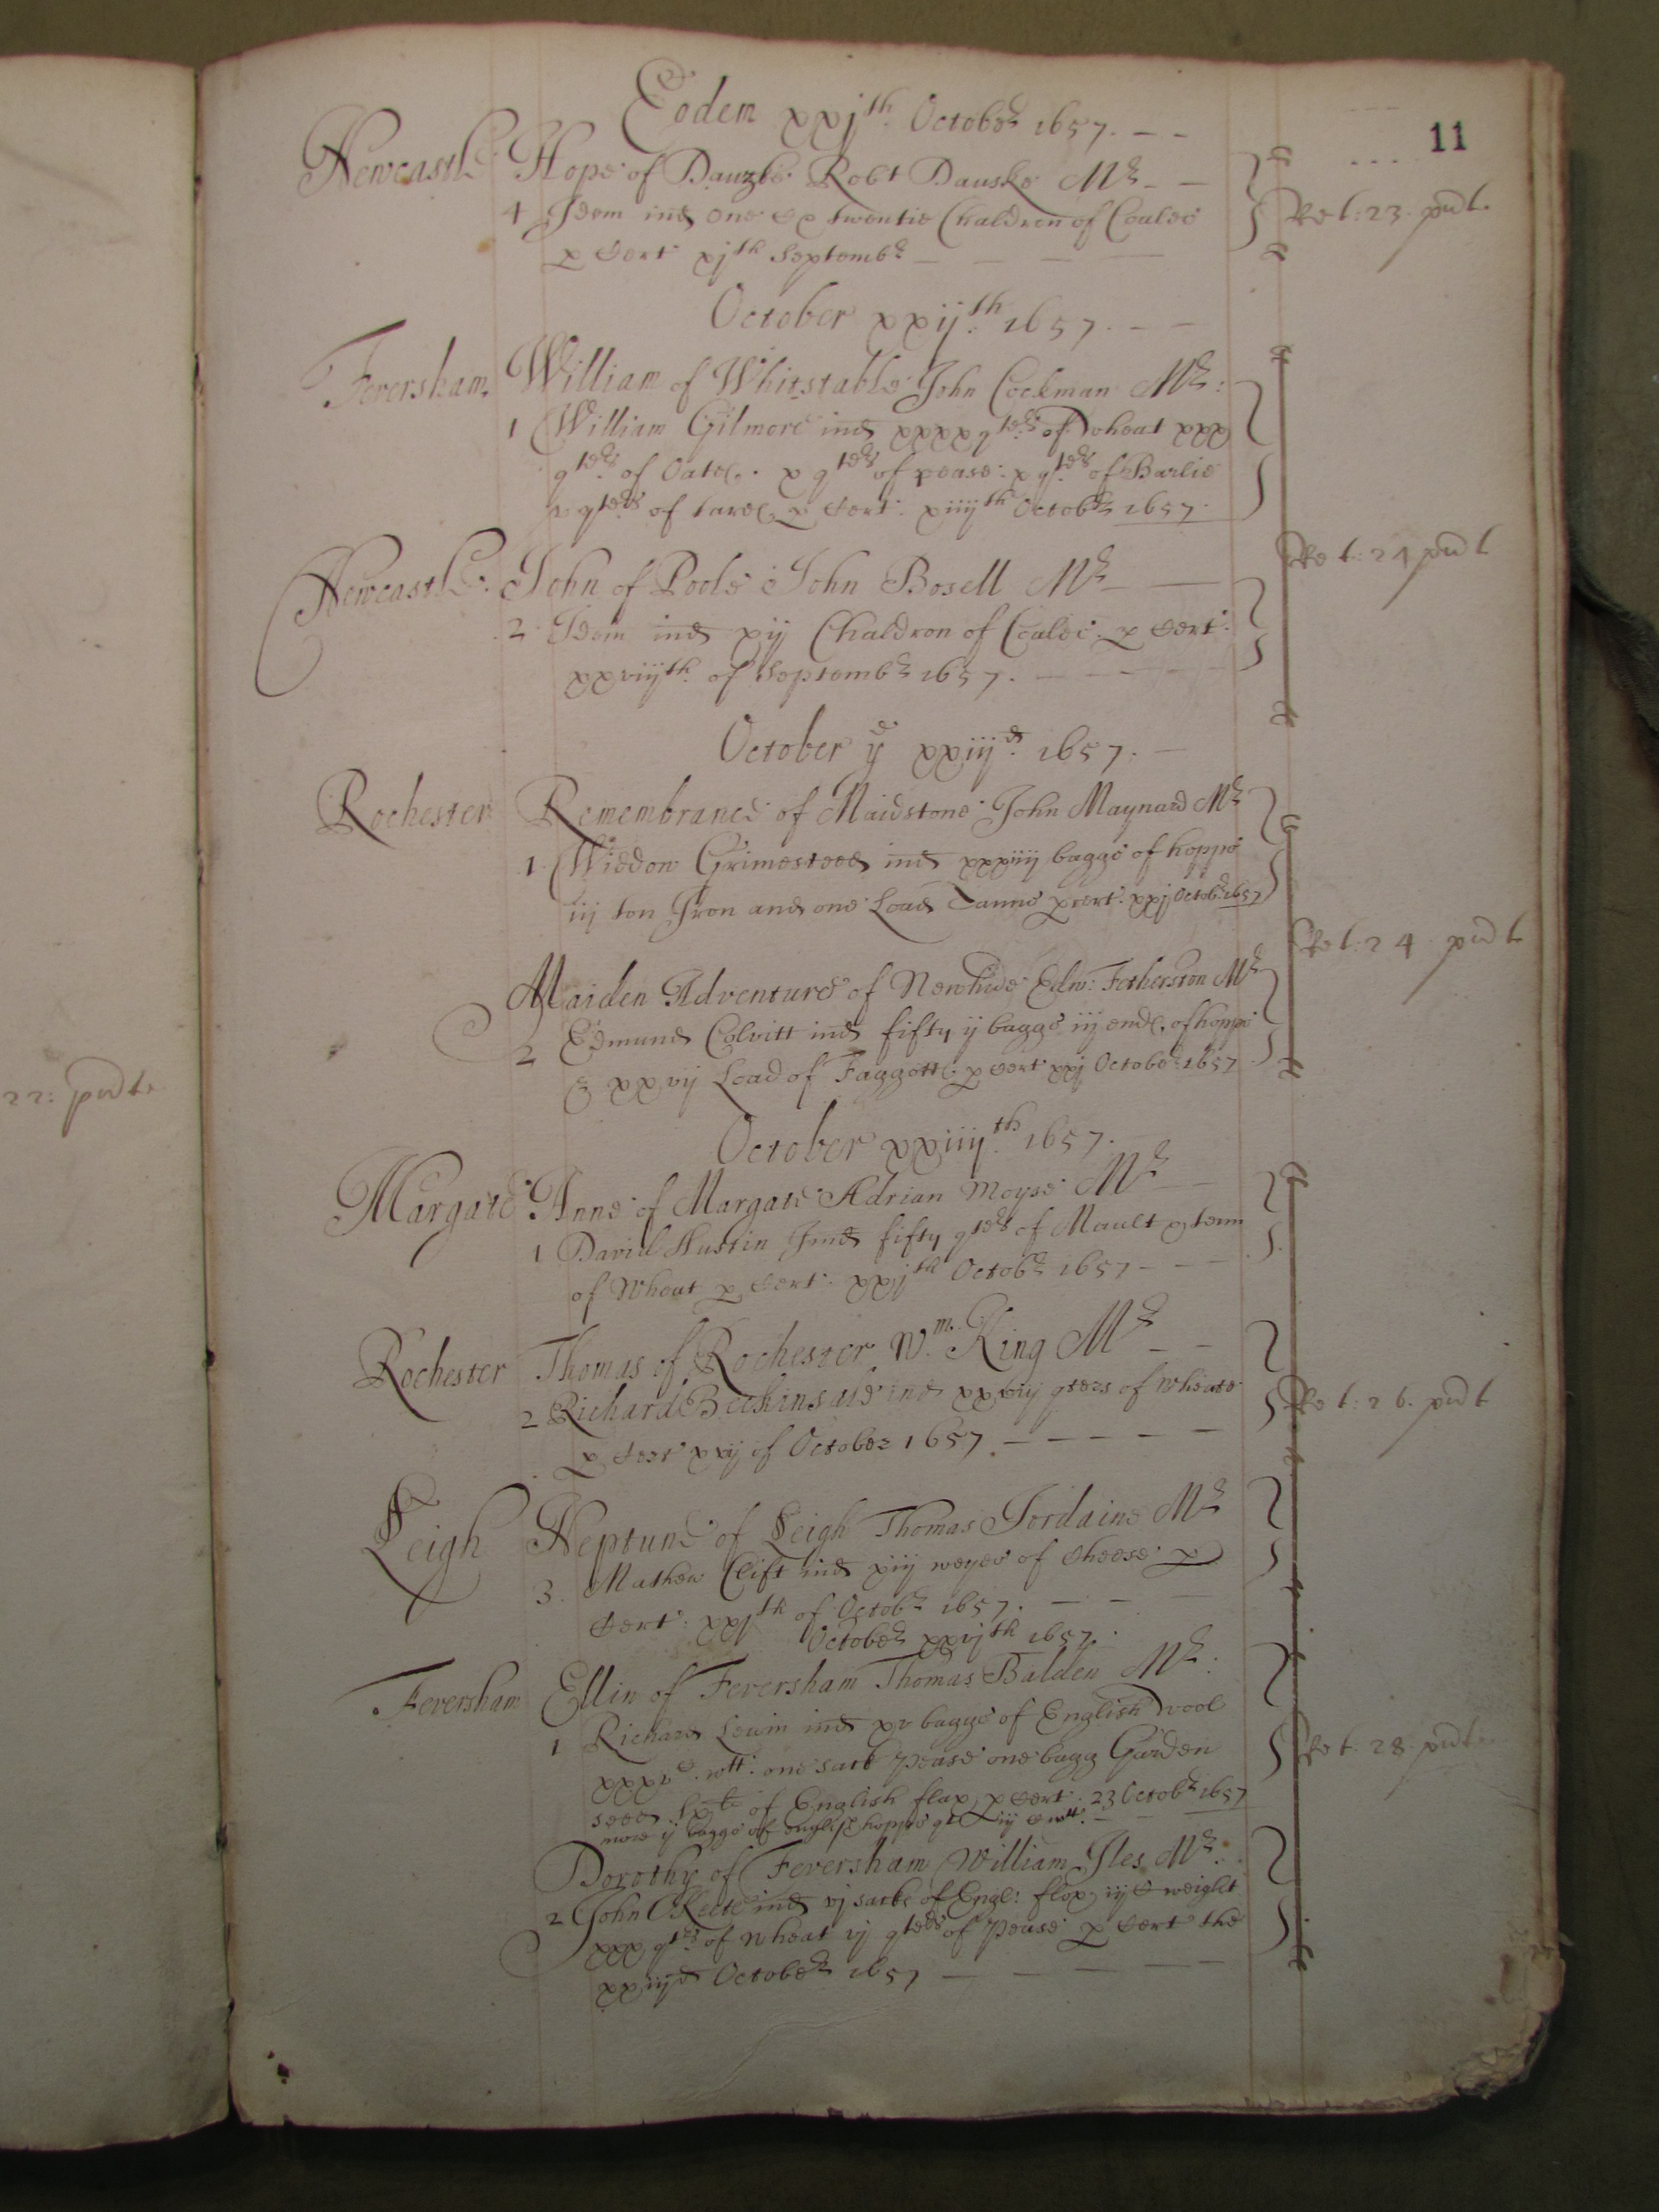 Eodem xxjth Octobr 1657.
11
Newcastle Hope of Dauzke Robt Dauske Mr
4 Idem ind one & twentie Chaldron of Coales
p Cert xjth Septembr
Ret: 23. prdt.
October xxijth 1657.
Feversham William of Whitstable John Cockman Mr:
1 William Gilmore ind xxxx qters of wheat xxx
qters of Oates. x qters of pease: x qters of Barlie
v qters of tares p Cert: xiiijth Octobr 1657.
Ret: 24 prdt
Newcastle. John of Poole John Bosell Mr
2 Idem ind xij Chaldron of Coales. p Cert.
xxviijth of Septembr 1657.
October ye xxiijd 1657.
Rochester Remembrance of Maidstone John Maynard Mr
1. Widdow Grimesteed ind xxxiiij baggs of hopps
iij ton Iron and one Load Tanne p cert. xxj Octobr 1657
Ret: 24 prdt
Maiden Adventure of Newhide Edw: Fetherston Mr
2 Edmund Colvitt ind fifty ij baggs iij ends of hopps
& xxvij Load of Faggotts p Cert xxj October 1657.
22: prdt.
October xxiiijth 1657.
Margate Anne of Margate Adrian Moyse Mr
1 David Hustin Ind fifty qters of Mault & tenn
of Wheat p Cert. xxijth Octobr 1657
Rochester Thomas of Rochester Wm. King Mr
2 Richard Beckinsale ind xxviij qters of Wheate
p Cert xxij of October 1657.
Ret: 26. prdt
Leigh Neptune of Leigh Thomas Jordaine Mr
3. Mathew Clift ind xiij weyes of Cheese p
Cert. xxjth of Octobr 1657.
October xxvjth 1657.
Feversham Ellin of Feversham Thomas Balden Mr:
1 Richard Lewin ind xv baggs of English wool
xxxv C. wtt: one sack Pease one bagg Garden
seed of English flax p Cert: 23 Octobr 1657
more ij baggs of english hopps qt iij C wtt.
Ret. 28. prdt
Dorothy of Feversham William Iles Mr.
2 John ind vj sacks of Engl: flax iij C weight
xxx qters of Wheat vj qters of Pease p Cert the
xxiijd October 1657